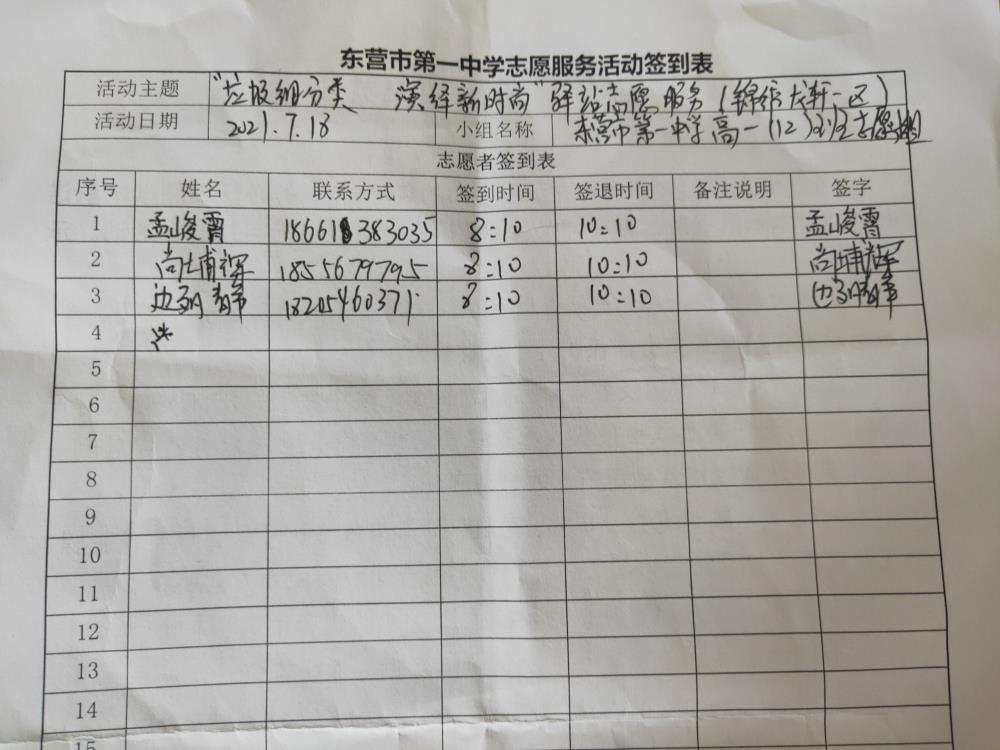 东营市第一中学志愿服务活动签到表
活动主题 "垃圾细分类 演绎新时尚"驿站志愿服务(锦绣大轩一区)
活动日期 2021.7.18 小组名称 东营市第一中学高一(12)班志愿小组
志愿者签到表
序号 姓名 联系方式 签到时间 签退时间 备注说明 签字
1 孟峻霄 18661383035 8:10 10:10 孟峻霄
2 尚埔辉 1855679795 8:10 10:10 尚埔辉
3 边 18205460371 8:10 10:10 边
4
5
6
7
8
9
10
11
12
13
14
15